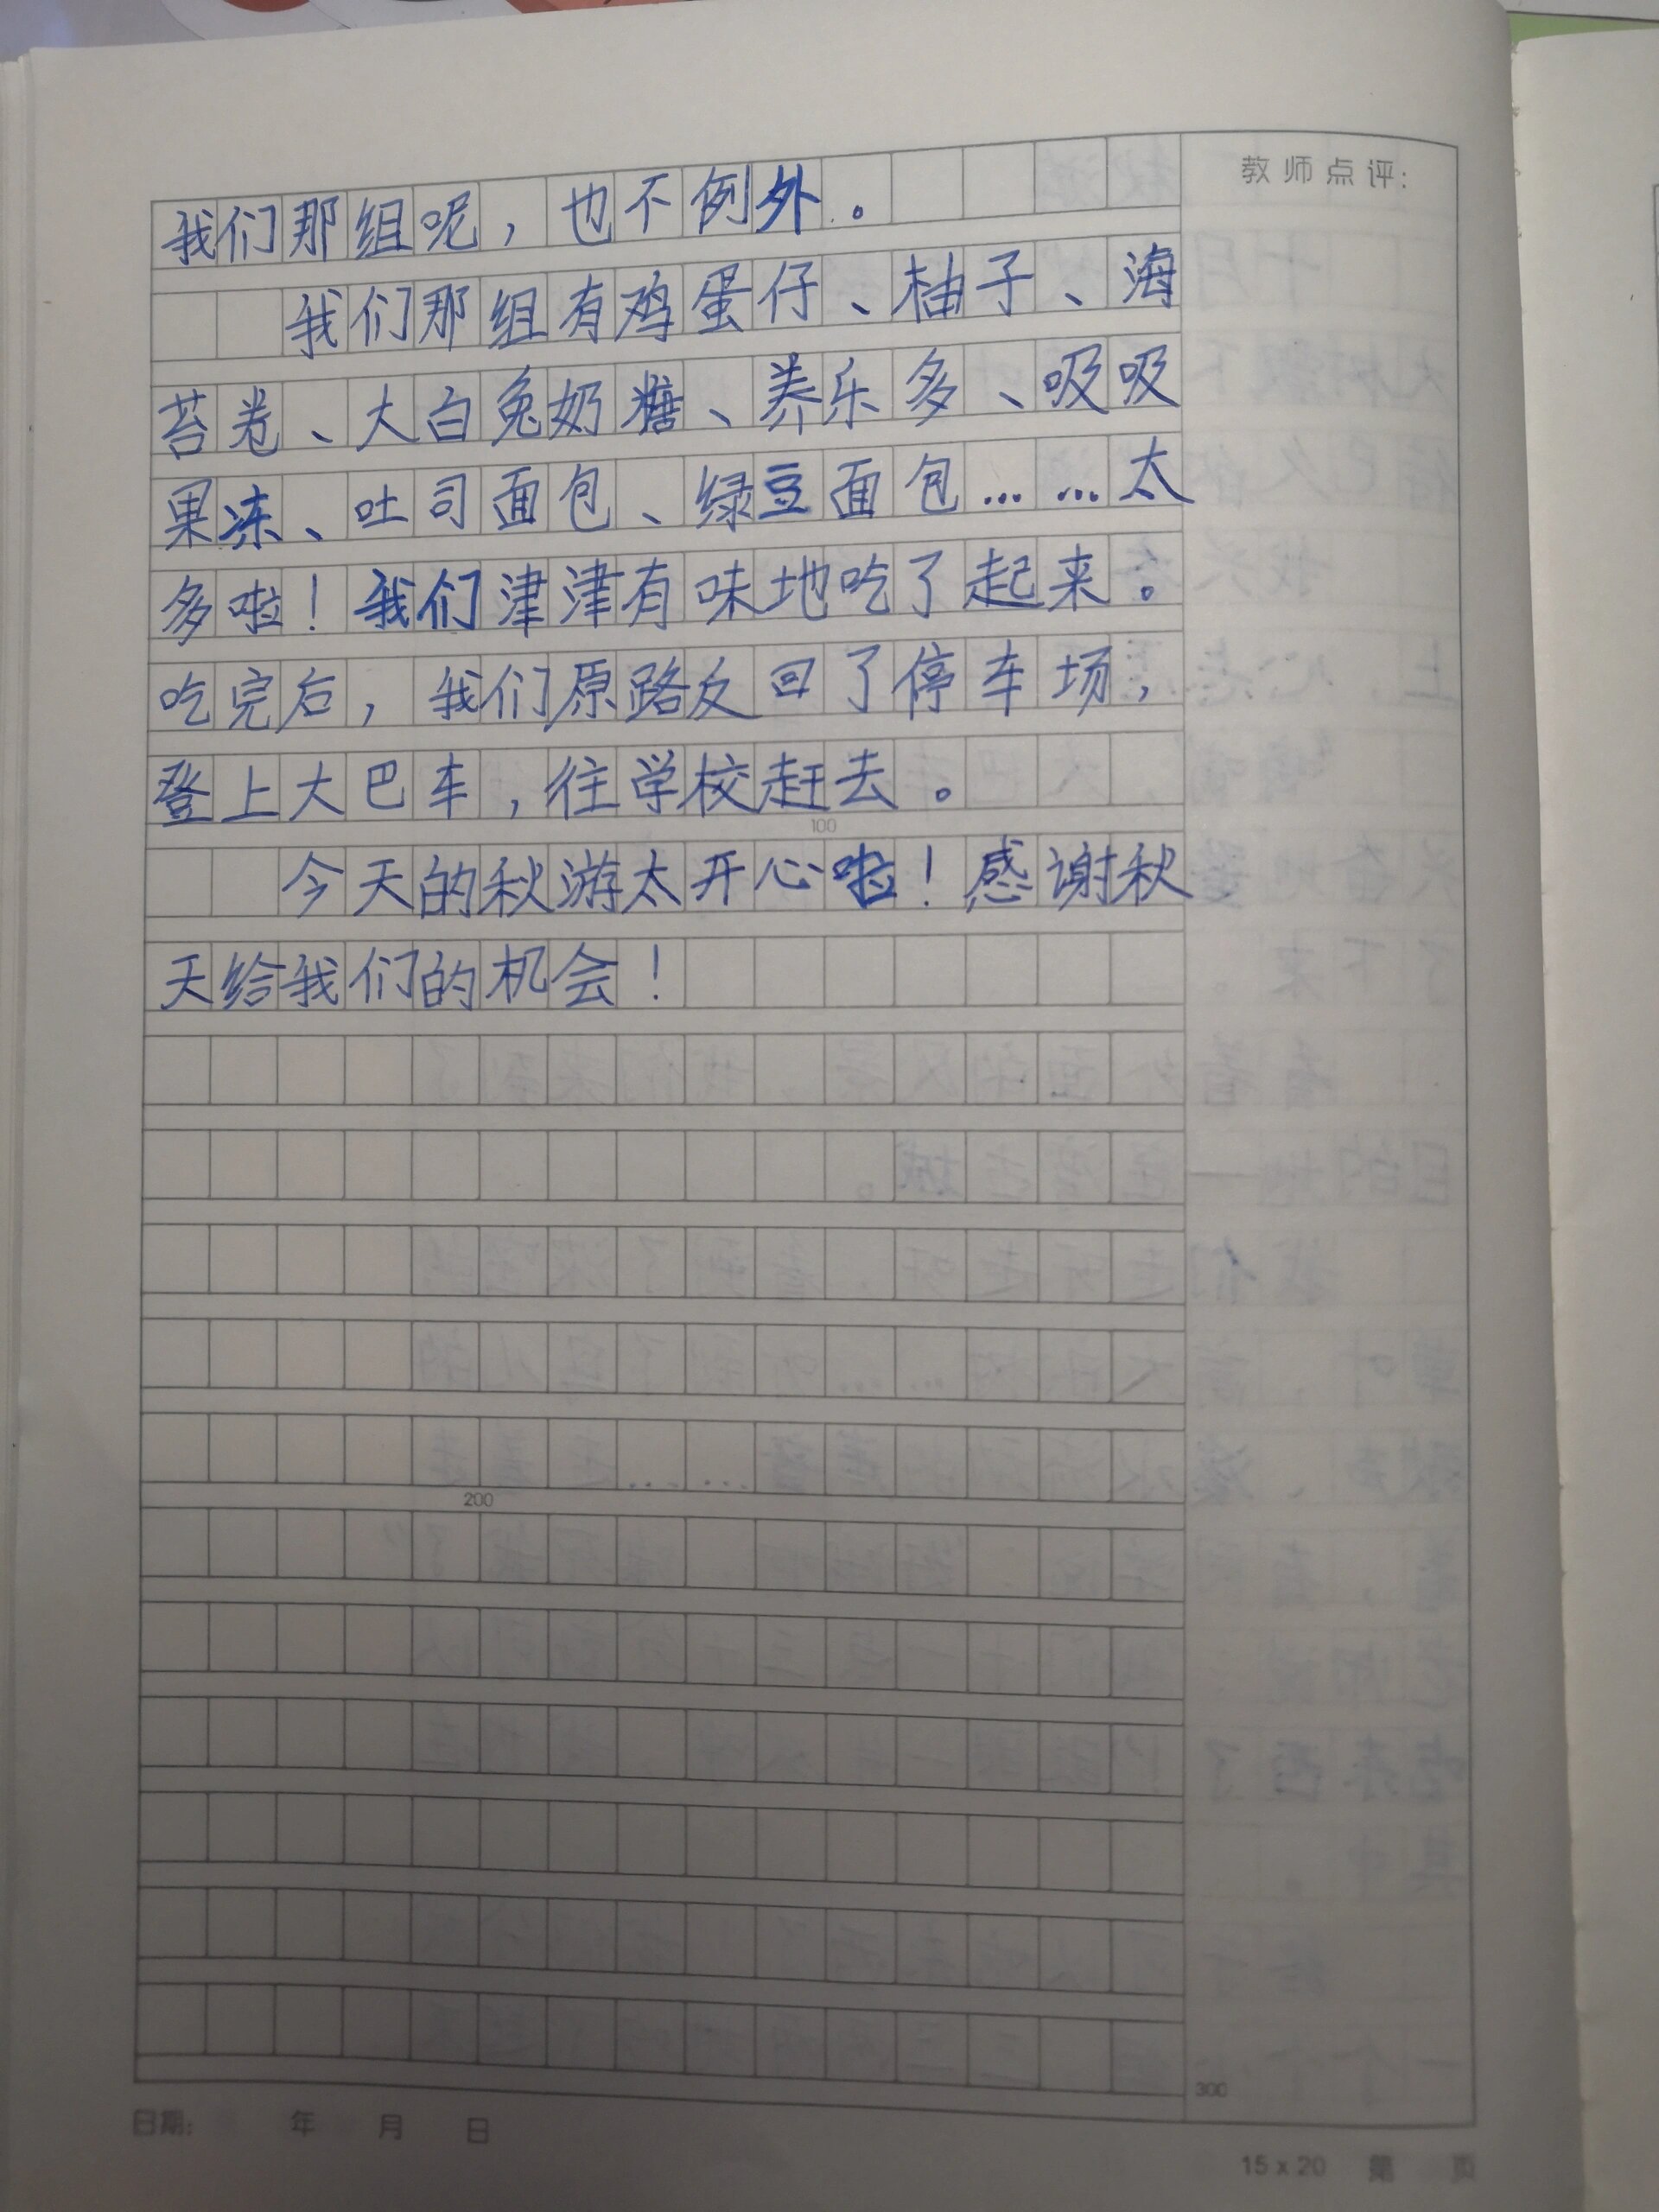 教师点评:
我们那组呢，也不例外。
我们那组有鸡蛋仔、柚子、海
苔卷、大白兔奶糖、养乐多、吸吸
果冻、吐司面包、绿豆面包……太
多啦！我们津津有味地吃了起来。
吃完后，我们原路反回了停车场，
登上大巴车，往学校赶去。
100
今天的秋游太开心啦！感谢秋
天给我们的机会！
200
300
日期: 年 月 日
15x20 第 页